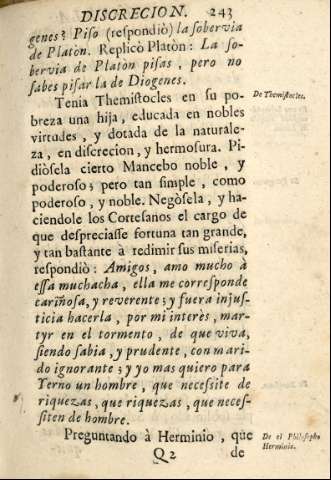 DISCRECION. 243
genes? Piso (respondiò) la sobervia
de Platòn. Replicò Platòn: La so-
bervia de Platòn pisas, pero no
sabes pisar la de Diogenes.
Tenia Themistocles en su po-
De Themistocles.
breza una hija, educada en nobles
virtudes, y dotada de la naturale-
za, en discrecion, y hermosura. Pi-
diòsela cierto Mancebo noble, y
poderoso; pero tan simple, como
poderoso, y noble. Negòsela, y ha-
ciendole los Cortesanos el cargo de
que despreciasse fortuna tan grande,
y tan bastante à redimir sus miserias,
respondiò: Amigos, amo mucho à
essa muchacha, ella me corresponde
cariñosa, y reverente; y fuera injus-
ticia hacerla, por mi interès, mar-
tyr en el tormento, de que viva,
siendo sabia, y prudente, con mari-
do ignorante; y yo mas quiero para
Yerno un hombre, que necesite de
riquezas, que riquezas, que neces-
siten de hombre.
Preguntando à Herminio, que
De el Philosopho
Herminio.
Q2 de